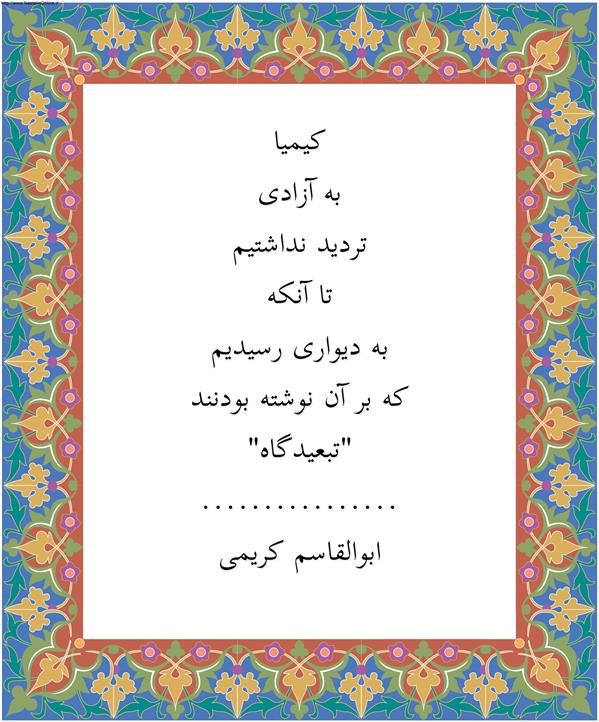 کیمیا
به آزادی
تردید نداشتیم
تا آنکه
به دیواری رسیدیم
که بر آن نوشته بودنند
"تبعیدگاه"
................
ابوالقاسم کریمی